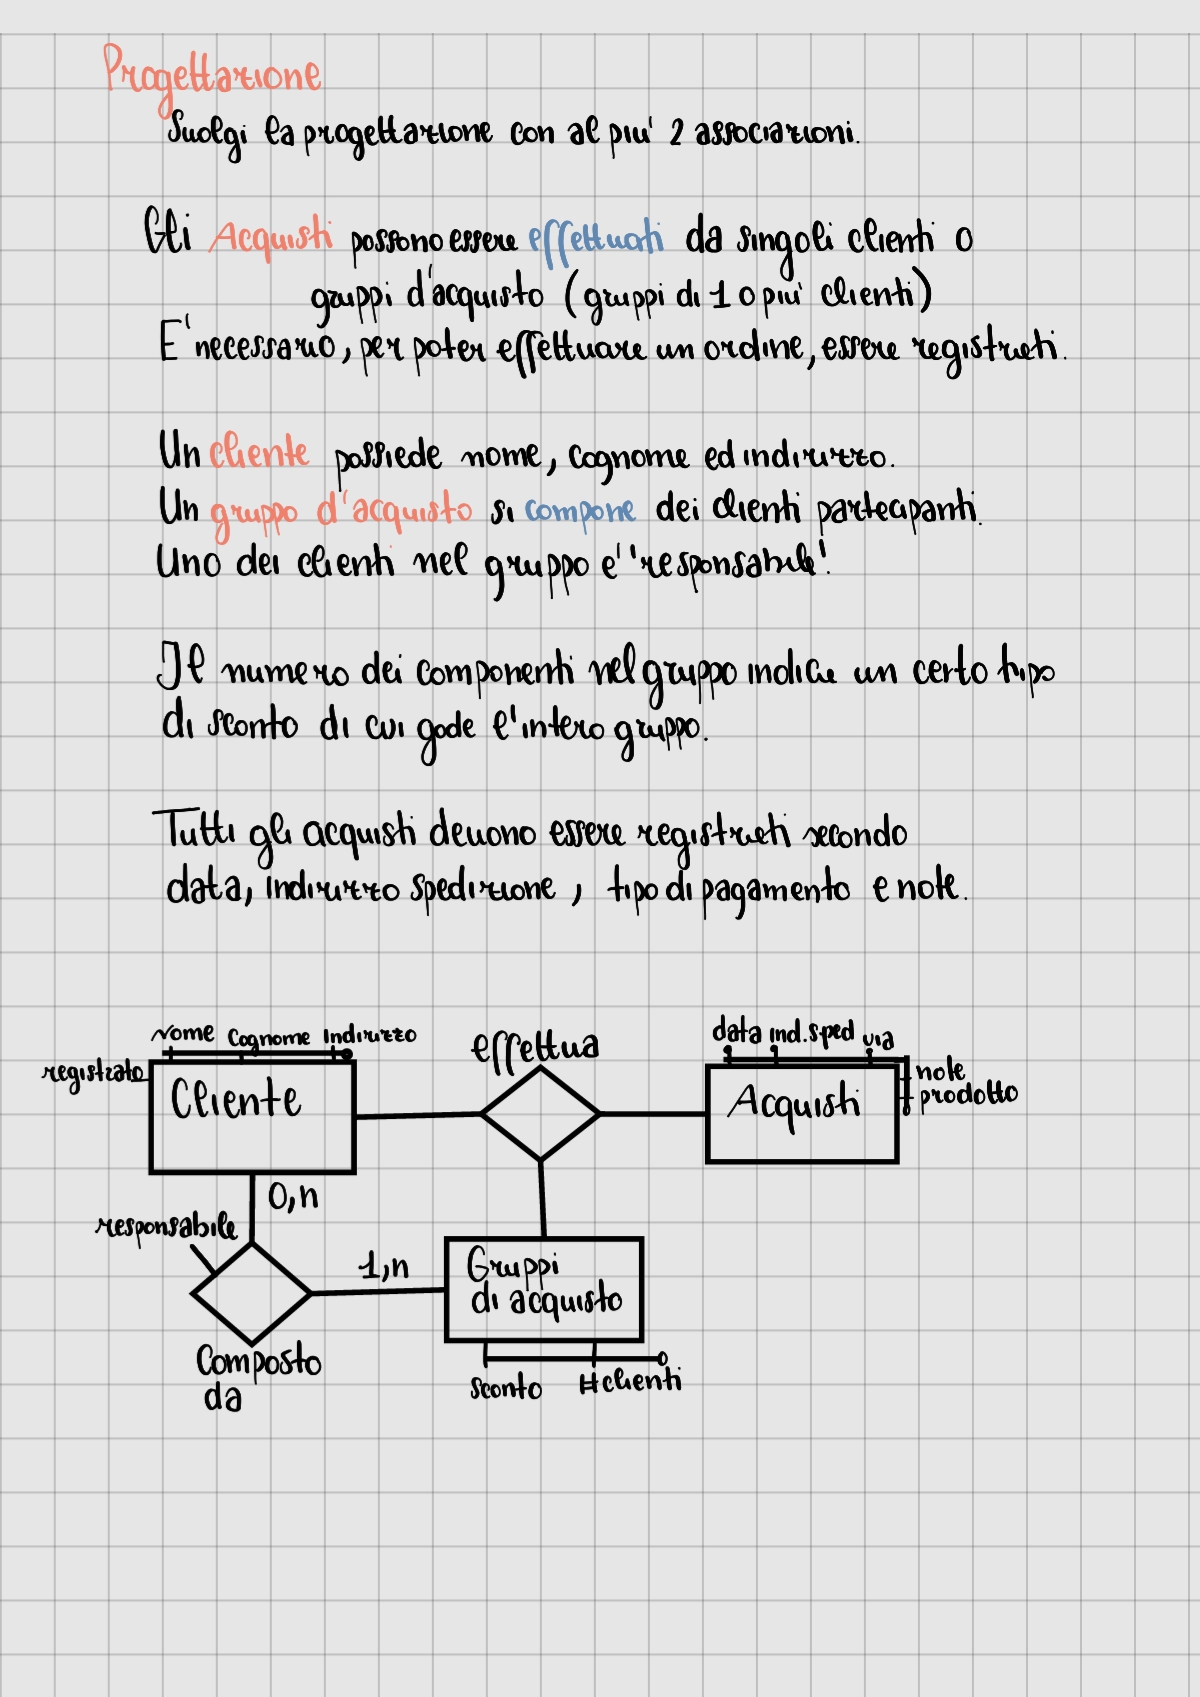 Progettazione
Svolgi la progettazione con al piu' 2 associazioni.
Gli Acquisti possono essere effettuati da singoli clienti o
gruppi d'acquisto (gruppi di 1 o piu' clienti)
E' necessario, per poter effettuare un ordine, essere registrati.
Un cliente possiede nome, cognome ed indirizzo.
Un gruppo d'acquisto si compone dei clienti partecipanti.
Uno dei clienti nel gruppo e' "responsabile".
Il numero dei componenti nel gruppo indica un certo tipo
di sconto di cui gode l'intero gruppo.
Tutti gli acquisti devono essere registrati secondo
data, indirizzo spedizione, tipo di pagamento e note.
nome cognome indirizzo
registrato
Cliente
effettua
data ind.sped via
note
prodotto
Acquisti
0,n
responsabile
1,n
Gruppi
di acquisto
Composto
da
sconto #clienti